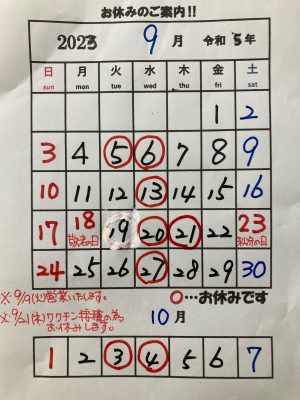 お休みのご案内!!
2023 9月 令和5年
日 月 火 水 木 金 土
sun mon tue wed thu fri sat
1 2
3 4 5 6 7 8 9
10 11 12 13 14 15 16
17 18 19 20 21 22 23
敬老の日 秋分の日
24 25 26 27 28 29 30
※9/19(火)営業いたします。
○…お休みです
※9/21(木)ワクチン接種の為
お休みします。
10月
1 2 3 4 5 6 7